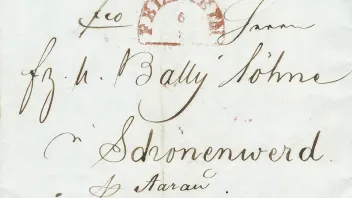 fco Herrn
fz. u. Bally Söhne
Schönenwerd.
p Aarau.